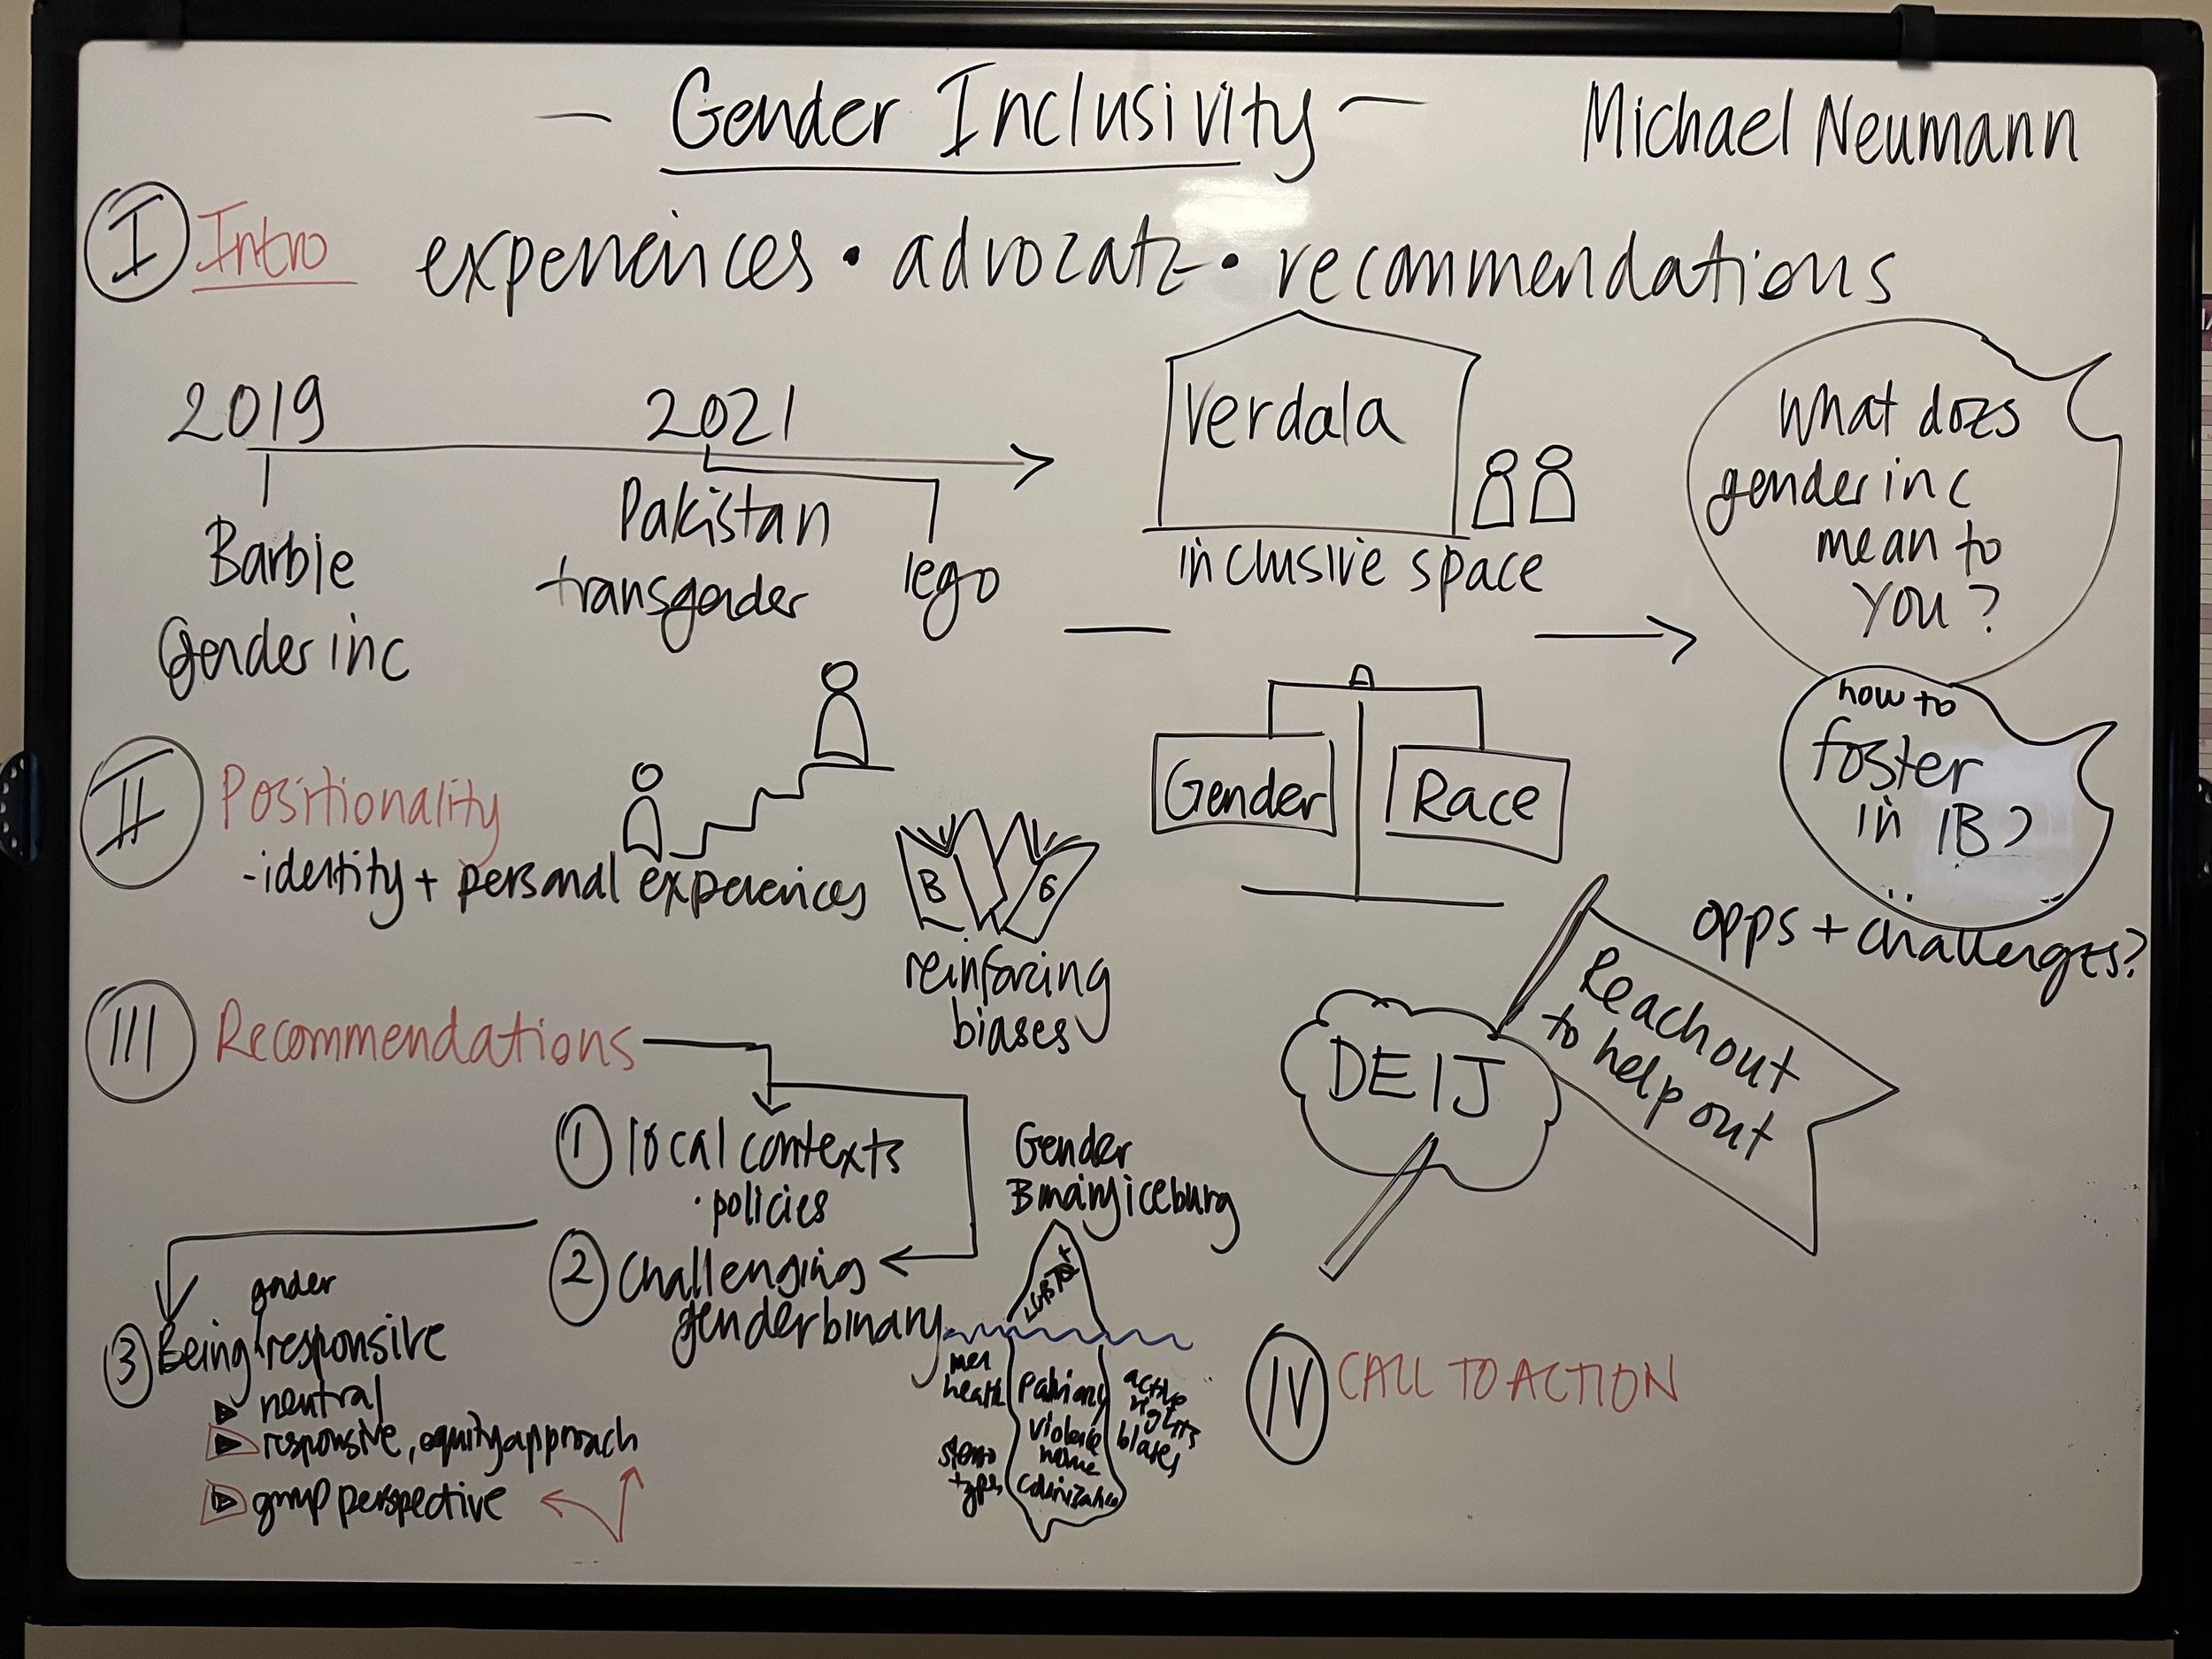 — Gender Inclusivity —
Michael Neumann
I Intro
experiences • advocate • recommendations
2019
Barbie
Gender inc
2021
Pakistan
transgender
lego
Verdala
inclusive space
What does
gender inc
mean to
you?
how to
foster
in IB?
opps + challenges?
II Positionality
- identity + personal experiences
B G
reinforcing
biases
Gender
Race
DEIJ
Reach out
to help out
III Recommendations
1 local contexts
• policies
2 Challenging
gender binary
gender
3 Being responsive
neutral
responsive, equity approach
group perspective
Gender
Binary iceburg
LGBTQ+
men
health
stereo
types
Patriarchy
violence
colonization
active
rights
biases
IV CALL TO ACTION